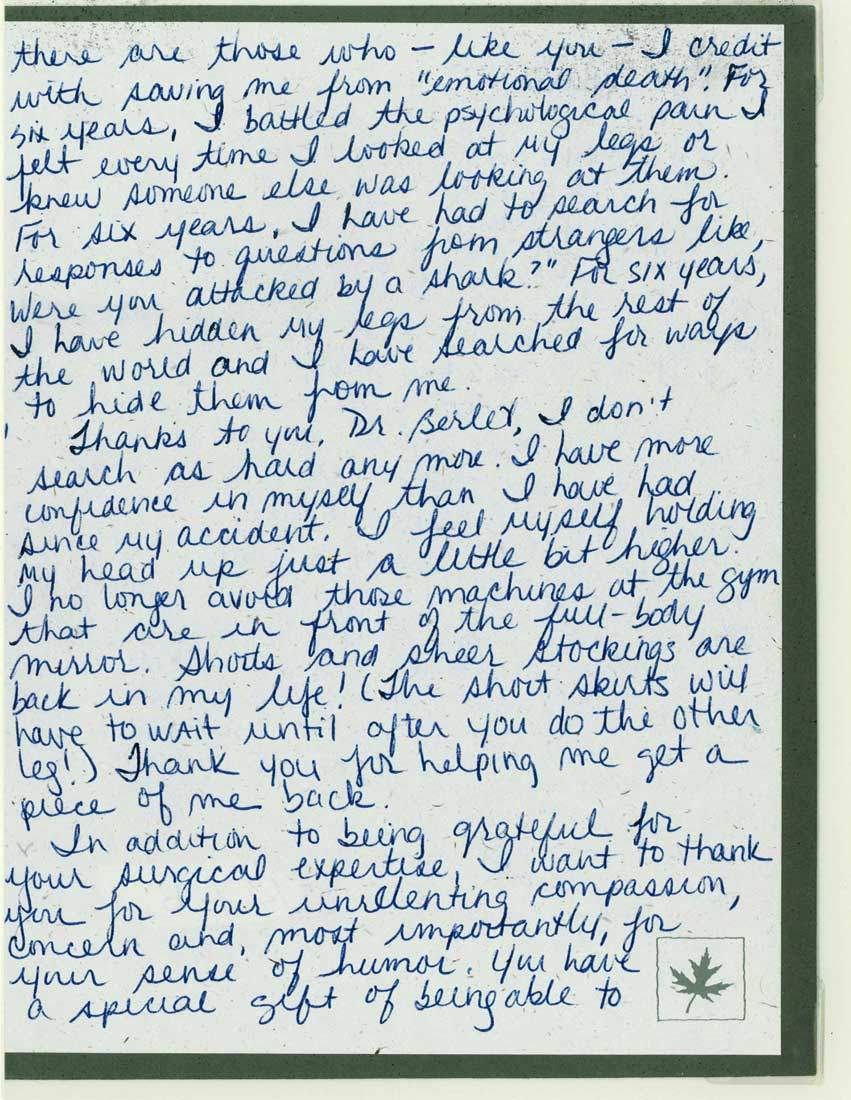 there are those who - like you - I credit
with saving me from "emotional death". For
six years, I battled the psychological pain I
felt every time I looked at my legs or
knew someone else was looking at them.
For six years, I have had to search for
responses to questions from strangers like,
Were you attacked by a shark?" For six years,
I have hidden my legs from the rest of
the world and I have searched for ways
to hide them from me.
Thanks to you, Dr. Berlet, I don't
search as hard any more. I have more
confidence in myself than I have had
since my accident. I feel myself holding
my head up just a little bit higher.
I no longer avoid those machines at the gym
that are in front of the full-body
mirror. Shorts and sheer stockings are
back in my life! (The short skirts will
have to wait until after you do the other
leg!) Thank you for helping me get a
piece of me back.
In addition to being grateful for
your surgical expertise, I want to thank
you for your unrelenting compassion,
concern and, most importantly, for
your sense of humor. You have
a special gift of being able to